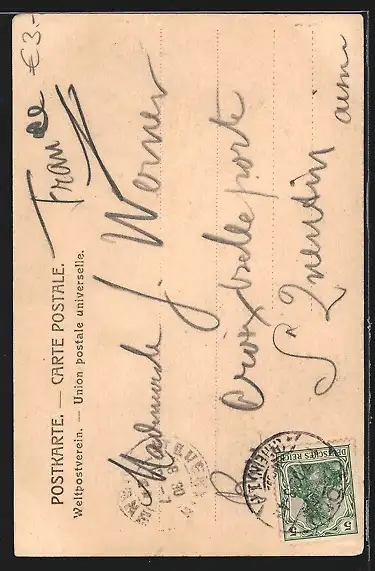 €3.-
France
POSTKARTE. — CARTE POSTALE.
Weltpostverein. — Union postale universelle.
Mademoiselle J. Werner
Croix belle porte
St Quentin
aisne
DEUTSCHES REICH
5 5